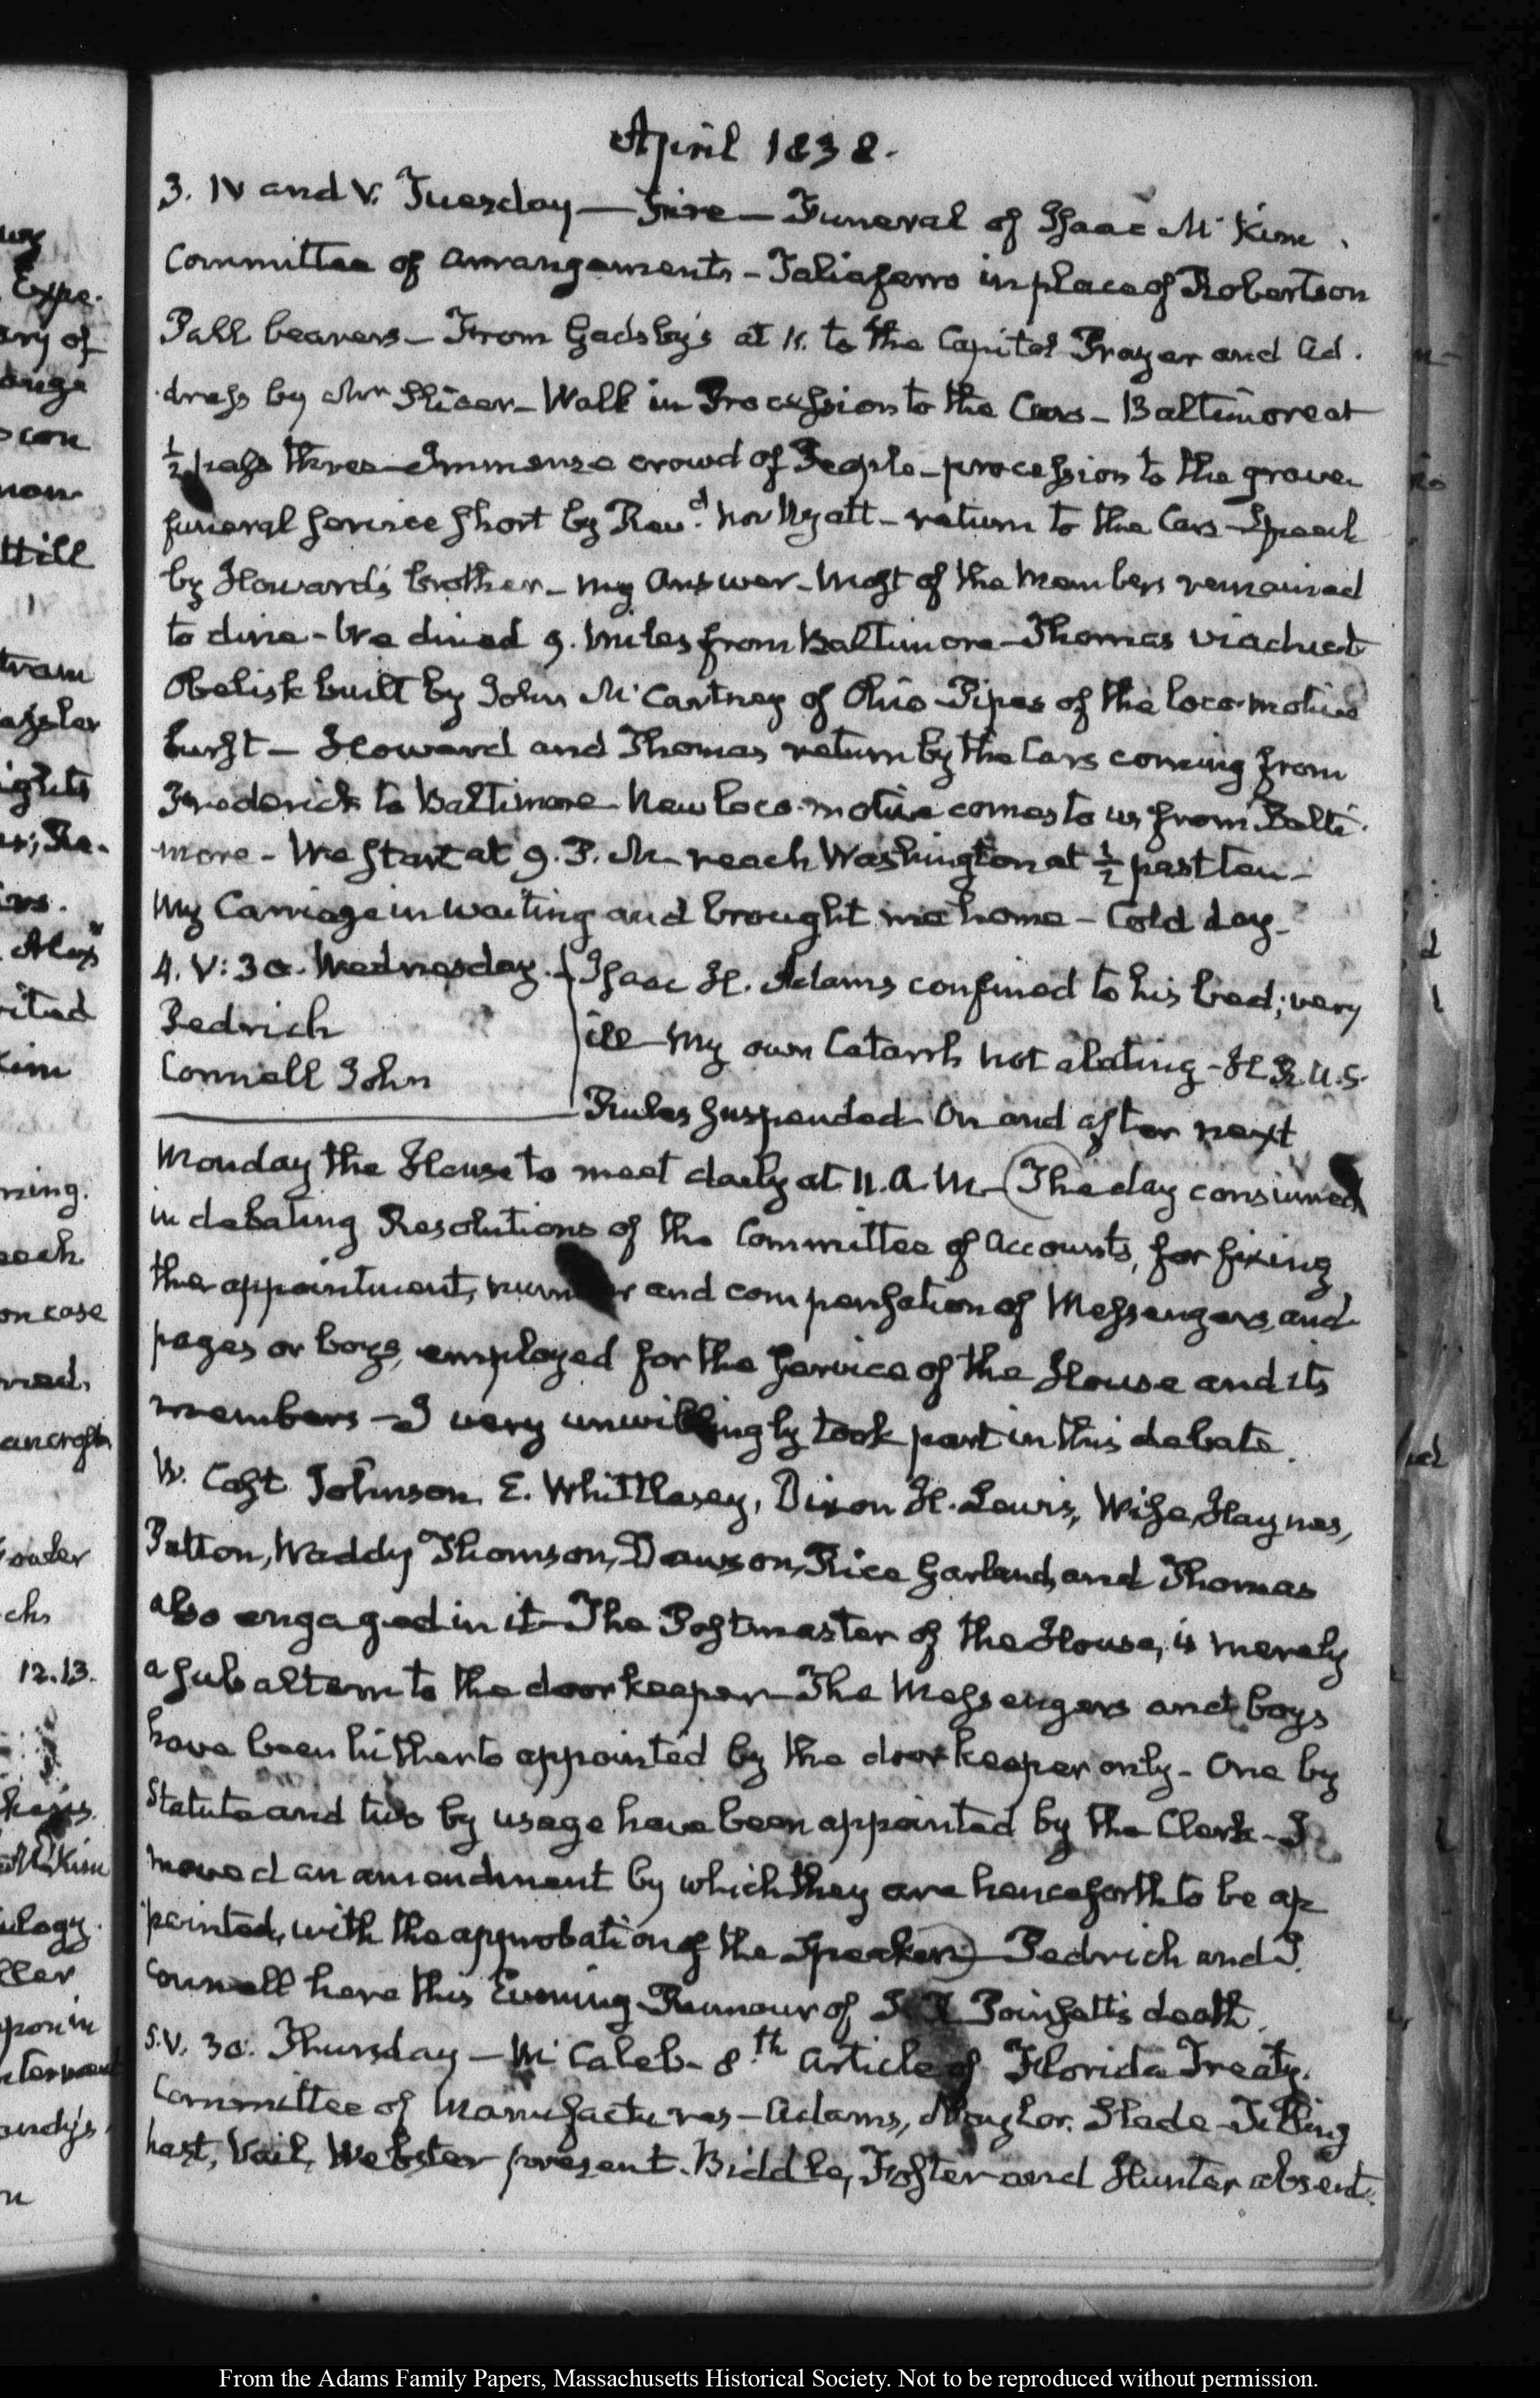 April 1838.
3. IV and V. Tuesday — Fire — Funeral of Isaac McKim.
Committee of arrangements - Taliaferro in place of Robertson
Pall bearers - From Gadsby's at 11. to the Capitol Prayer and Ad.
dress by Mr Slicer - Walk in Procession to the Cars - Baltimore at
½ past three - Immense crowd of People - procession to the grave
funeral service short by Revd. Mr Wyatt - return to the Cars - Speech
by Howard's brother - my Answer - Most of the Members remained
to dine - We dined 9. miles from Baltimore - Thomas viaduct
Obelisk built by John McCartney of Ohio - Pipes of the loco-motive
burst - Howard and Thomas return by the Cars coming from
Frederick to Baltimore - New loco-motive comes to us from Balti-
more - We start at 9. P. M - reach Washington at ½ past ten -
My Carriage in waiting and brought me home - Cold day -
4. V: 30. Wednesday.
Pedrich
Connell John
Isaac H. Adams confined to his bed; very
ill - My own Catarrh not abating - H. R. U. S.
Rules suspended - On and after next
Monday the House to meet daily at 11. A. M. - (The day consumed
in debating Resolutions of the Committee of Accounts, for fixing
the appointment, number and compensation of Messengers, and
pages or boys, employed for the service of the House and its
members - I very unwillingly took part in this debate.
W. Cost Johnson, E. Whittlesey, Dixon H. Lewis, Wise, Haynes,
Patton, Waddy Thomson, Dawson, Rice Garland, and Thomas
also engaged in it - The Postmaster of the House, is merely
a subaltern to the door keeper - The Messengers and boys
have been hitherto appointed by the door keeper only - One by
Statute and two by usage have been appointed by the Clerk - I
moved an amendment by which they are henceforth to be ap
pointed, with the approbation of the Speaker) - Pedrich and J.
Connell here this Evening - Rumour of J R Poinsett's death.
5. V. 30. Thursday - McCaleb - 8th Article of Florida Treaty.
Committee of Manufactures - Adams, Naylor, Slade - Tilling
hast, Vail, Webster present - Biddle, Foster and Hunter absent.
From the Adams Family Papers, Massachusetts Historical Society. Not to be reproduced without permission.